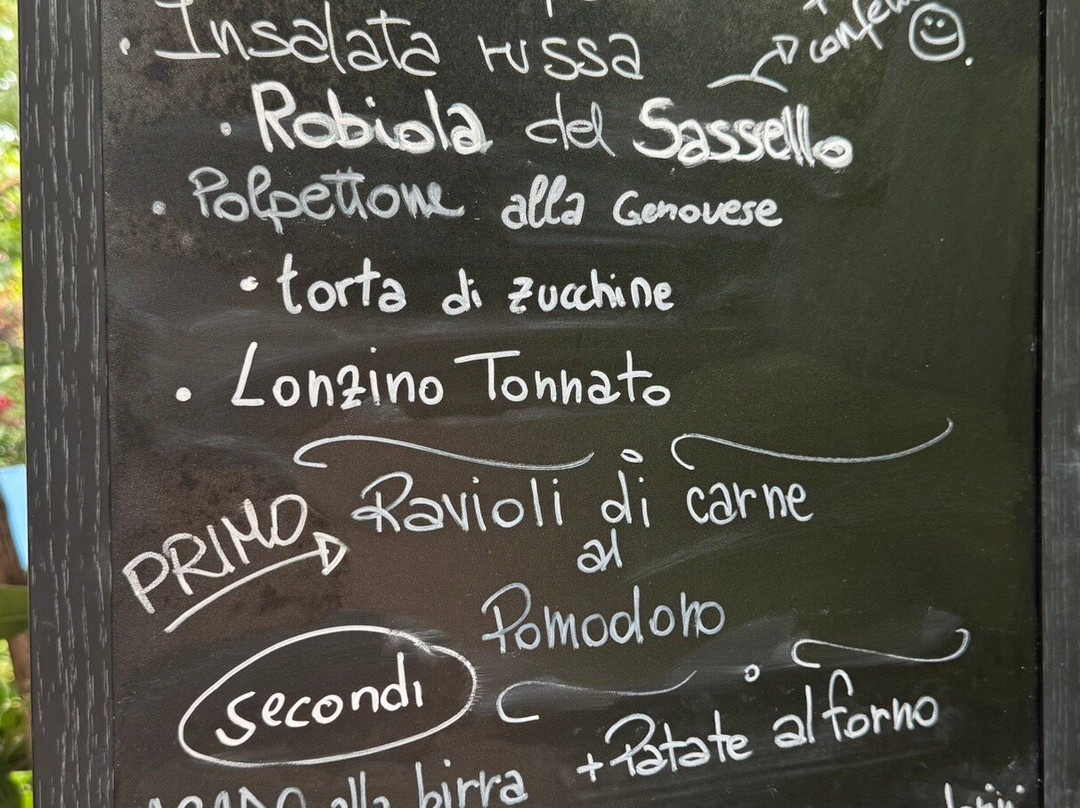 • Insalata russa
• Robiola del Sassello
• Polpettone alla Genovese
• torta di zucchine
• Lonzino Tonnato
PRIMO Ravioli di carne
al
Pomodoro
secondi
+ Patate al forno
alla birra